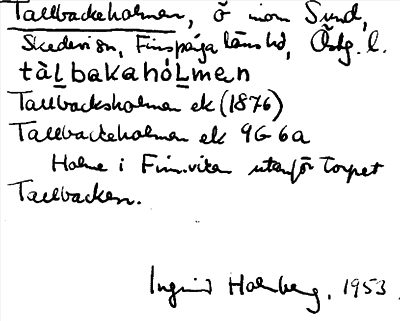 Tallbackeholmen, ö inom Sund,
Skedevi sn, Finspånga länshd, Östg. l.
tàḻbakahóḺmen
Tallbacksholmen ek (1876)
Tallbackeholmen ek 9G 6a
Holme i Finnviken utanför torpet
Tallbacken.
Ingrid Holmberg, 1953